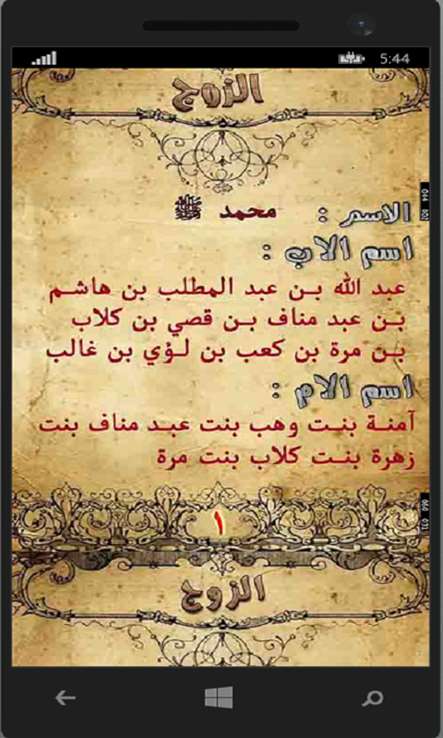 5:44
الزوج
الاسم : محمد ﷺ
اسم الاب :
عبد الله بن عبد المطلب بن هاشم
بن عبد مناف بن قصي بن كلاب
بن مرة بن كعب بن لؤي بن غالب
اسم الام :
آمنة بنت وهب بنت عبد مناف بنت
زهرة بنت كلاب بنت مرة
١
الزوج